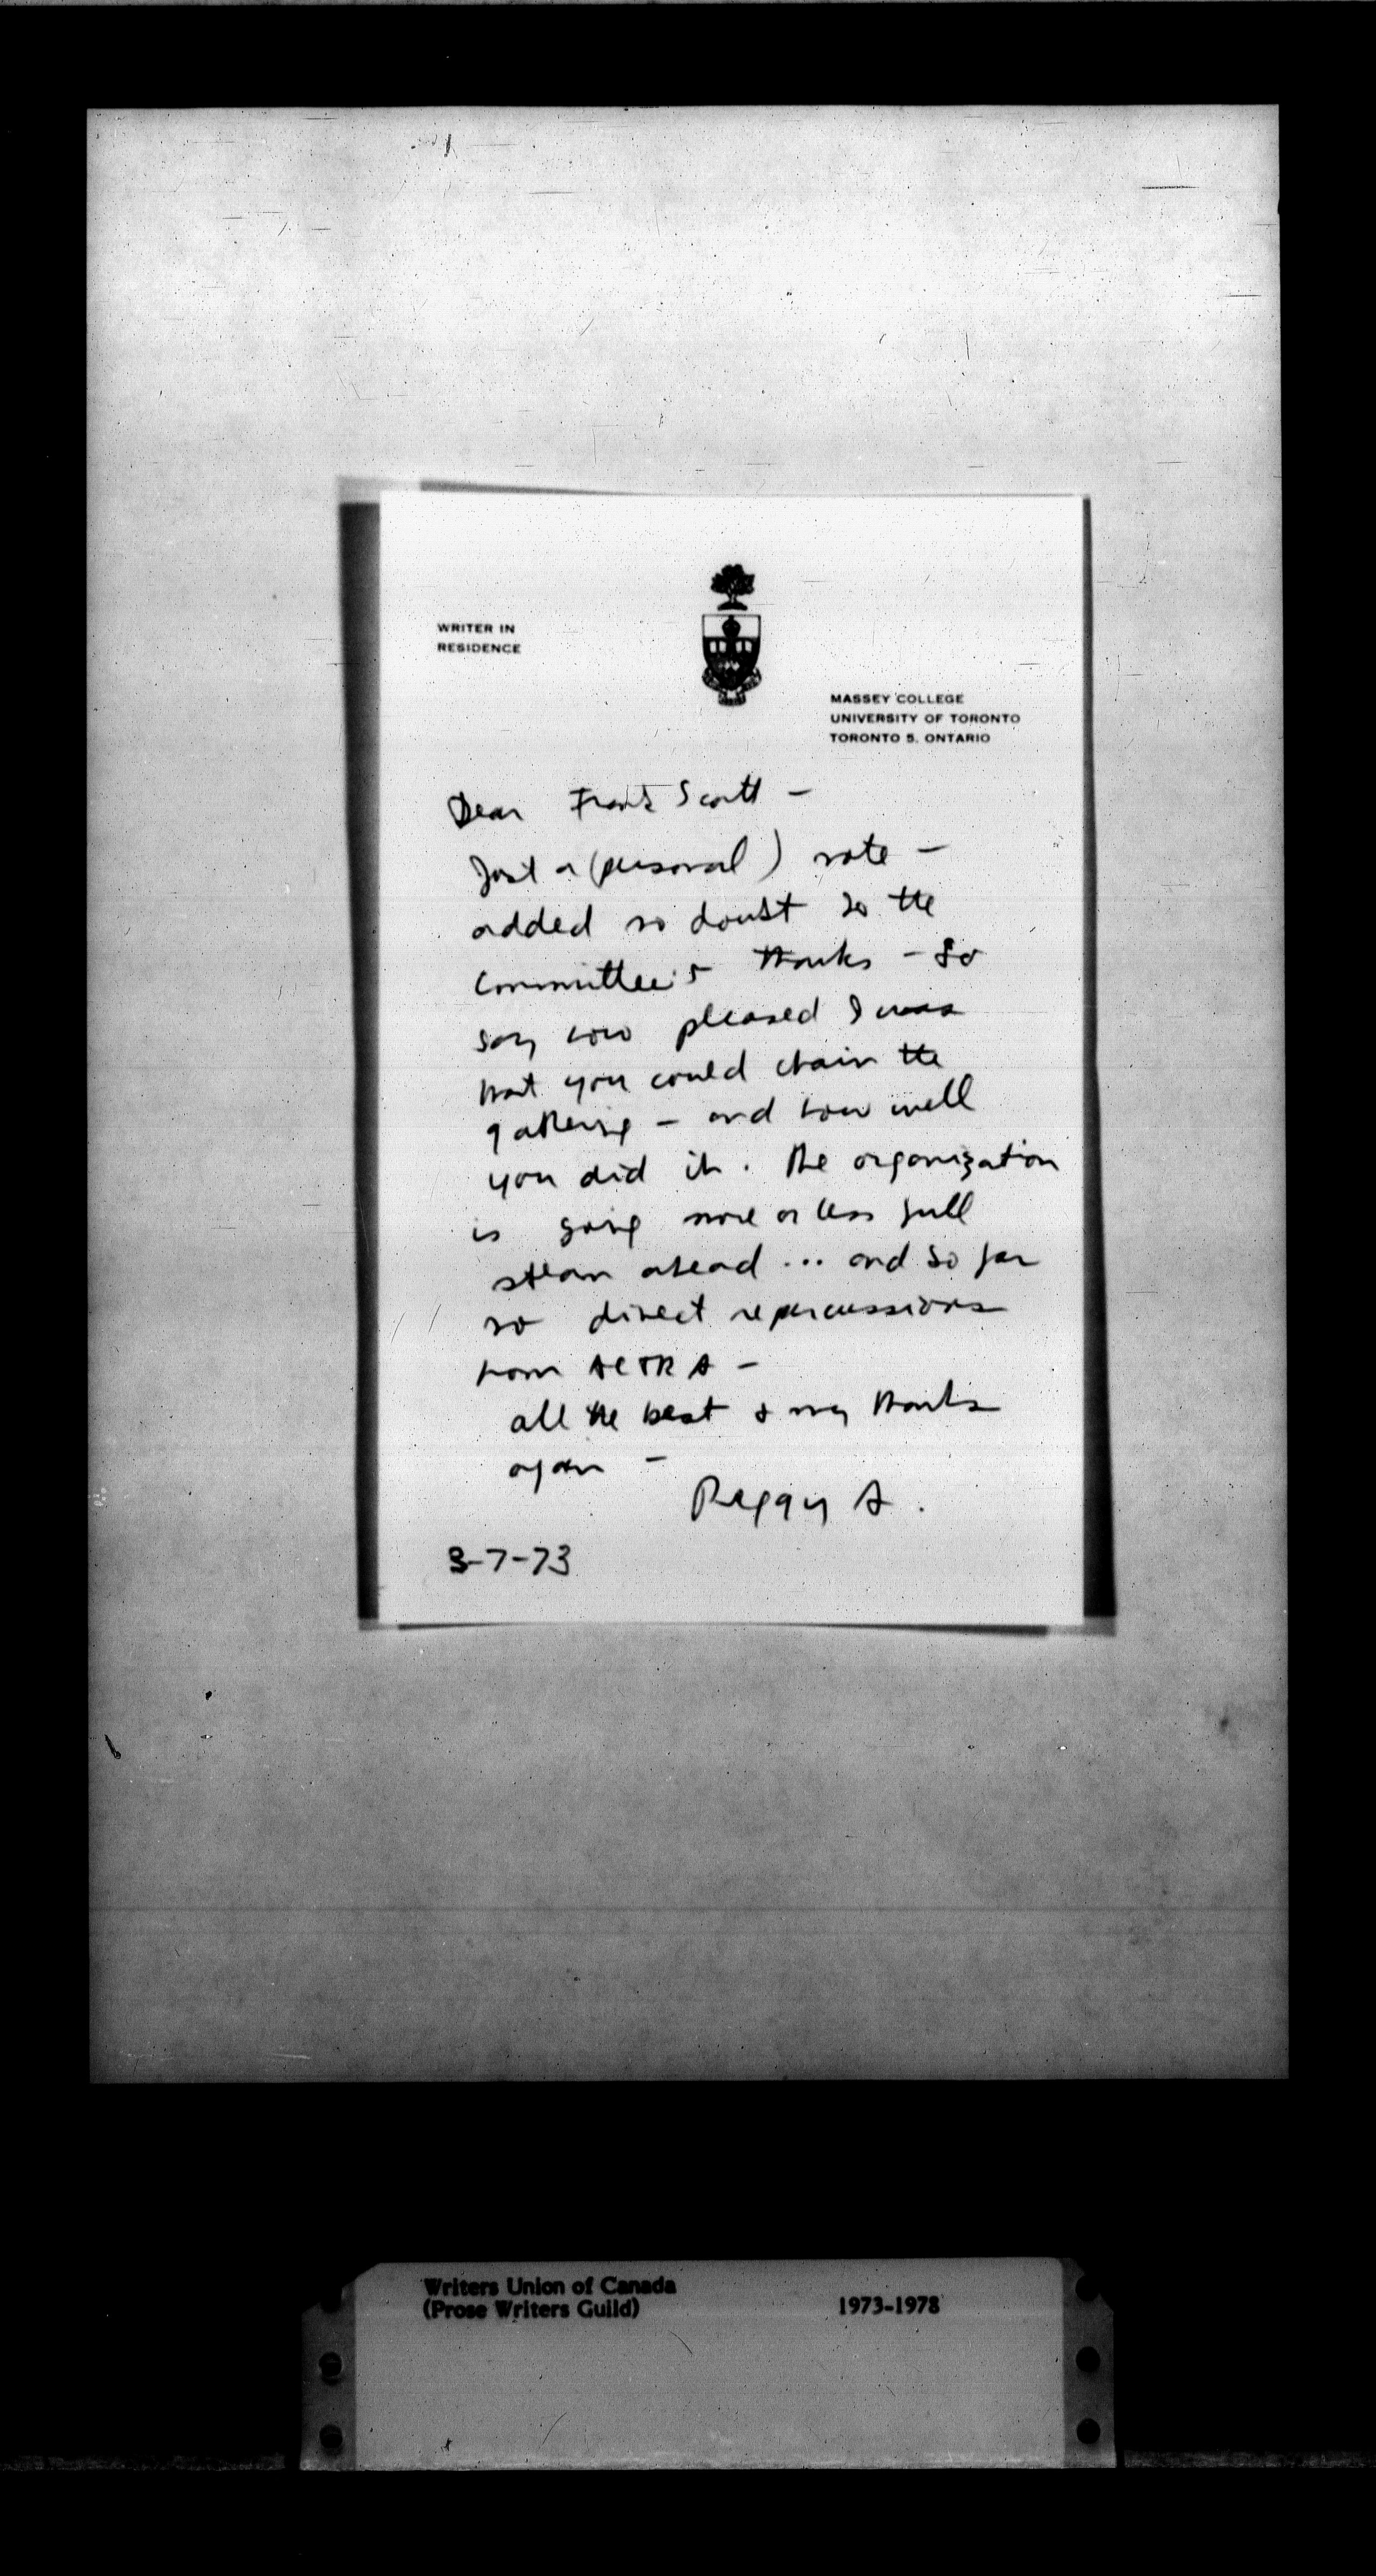 WRITER IN
RESIDENCE
MASSEY COLLEGE
UNIVERSITY OF TORONTO
TORONTO 5, ONTARIO
Dear Frank Scott –
Just a (personal) note –
added no doubt to the
Committee's thanks – to
say how pleased I was
that you could chair the
gathering – and how well
you did it. The organization
is going more or less full
steam ahead ... and so far
no direct repercussions
from ACTRA –
all the best & my thanks
again –
Peggy A.
3-7-73
Writers Union of Canada
(Prose Writers Guild)
1973-1978